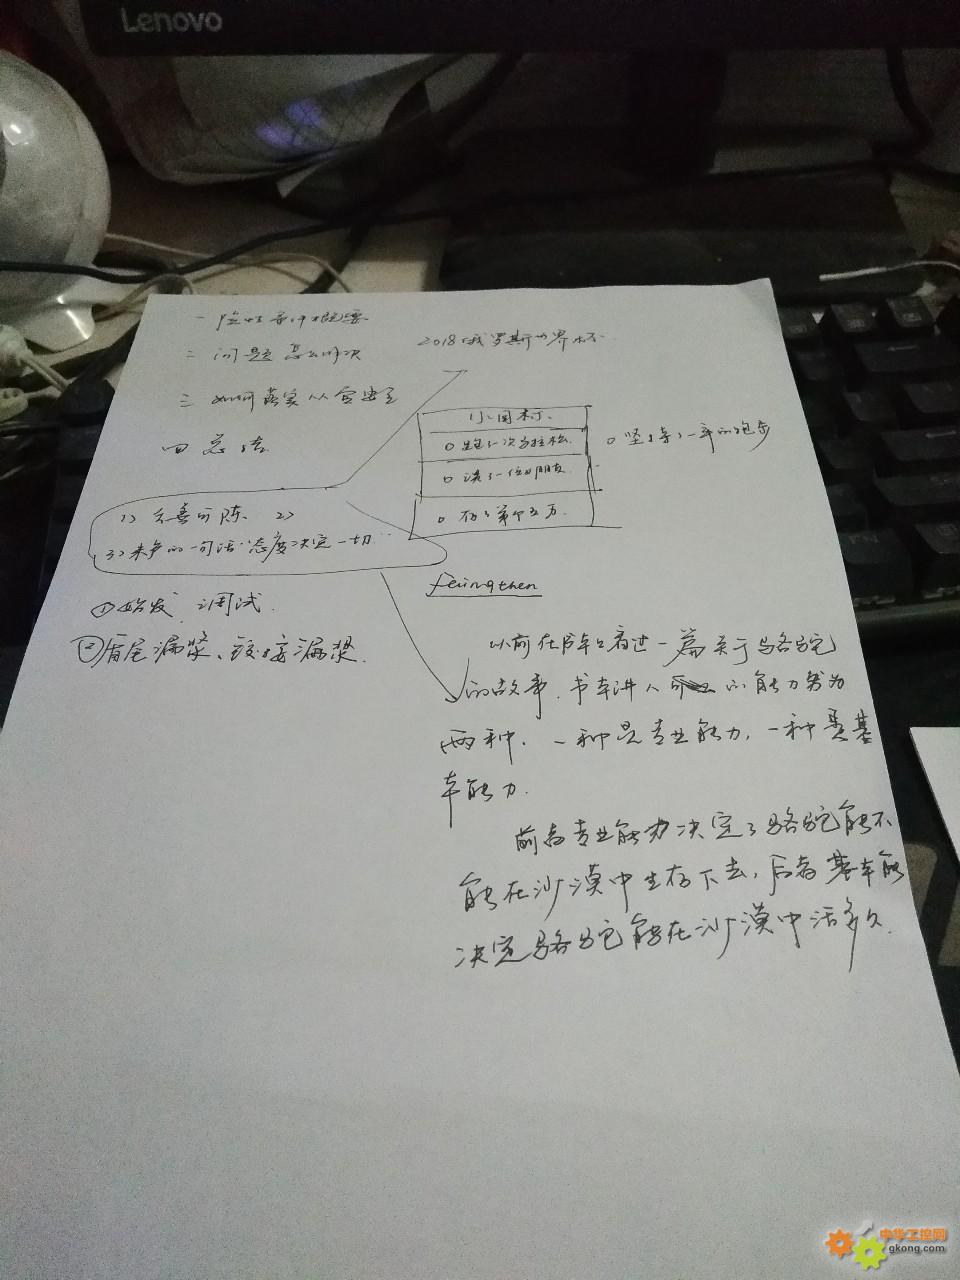 Lenovo
二 问题怎么解决
2018俄罗斯世界杯
三 如何落实人员安全
四 总结
小目标
跑了一次马拉松
坚持了一年的跑步
谈了一位朋友
存了第个五万
1) 2)
3) 一句话 态度决定一切…
① 始发 调试
② 盾尾漏浆、铰接漏浆
以前在书本上看过一篇关于骆驼
的故事.书本讲人的能力分为
两种.一种是专业能力,一种是基
本能力.
前者专业能力决定了骆驼能不
能在沙漠中生存下去,后者基本能
决定骆驼能在沙漠中活多久.
中华工控网
gkong.com